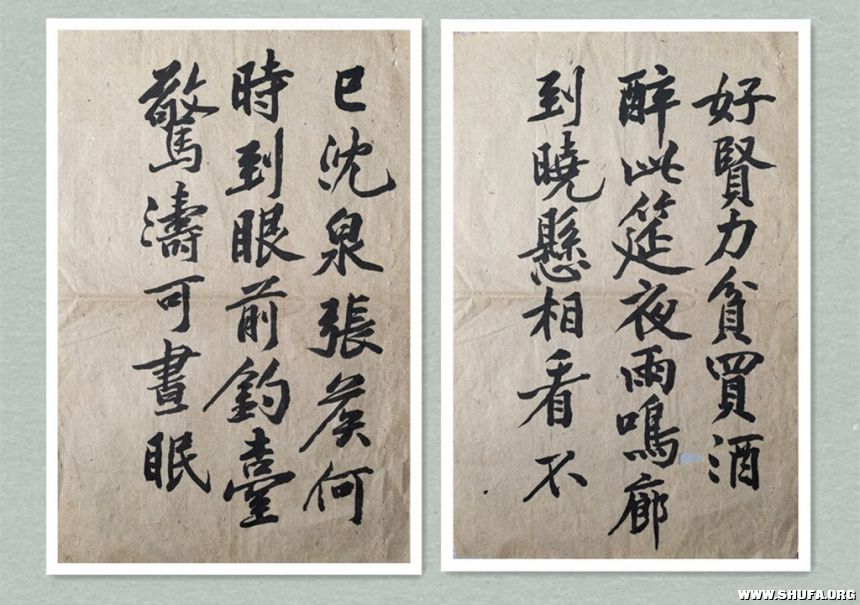 好賢力貧買酒
醉此筵夜雨鳴廊
到曉懸相看不
已沈泉張侯何
時到眼前釣臺
驚濤可晝眠
WWW.SHUFA.ORG